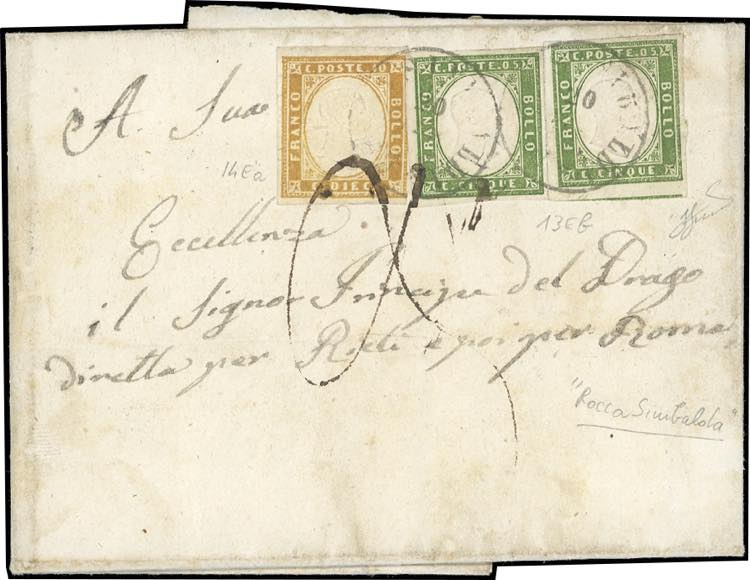 C. POSTE. 10
FRANCO
BOLLO
C. DIECI
C. POSTE. 05
FRANCO
BOLLO
C. CINQUE
C. POSTE. 05
FRANCO
BOLLO
C. CINQUE
A Sua
14Ea
Eccellenza
13Eb
il Signor Principe del Drago
diretta per Rieti e poi per Roma
"Rocca Sinibalda"